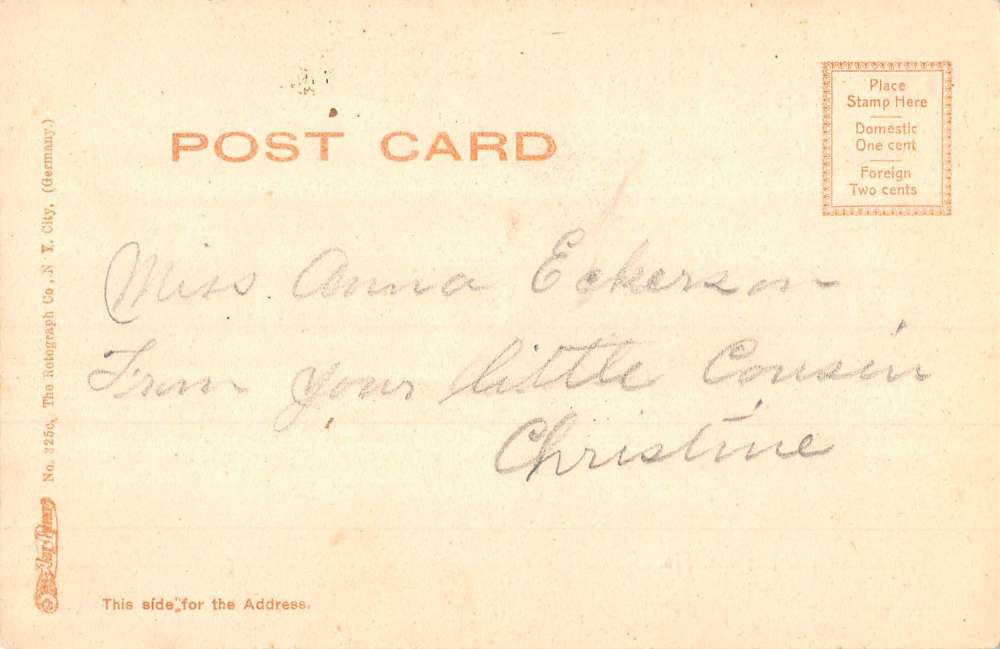 POST CARD
Place
Stamp Here
Domestic
One cent
Foreign
Two cents
Miss Anna Eckerson
From your little Cousin
Christine
No. 325c, The Rotograph Co., N Y. City. (Germany.)
This side for the Address.